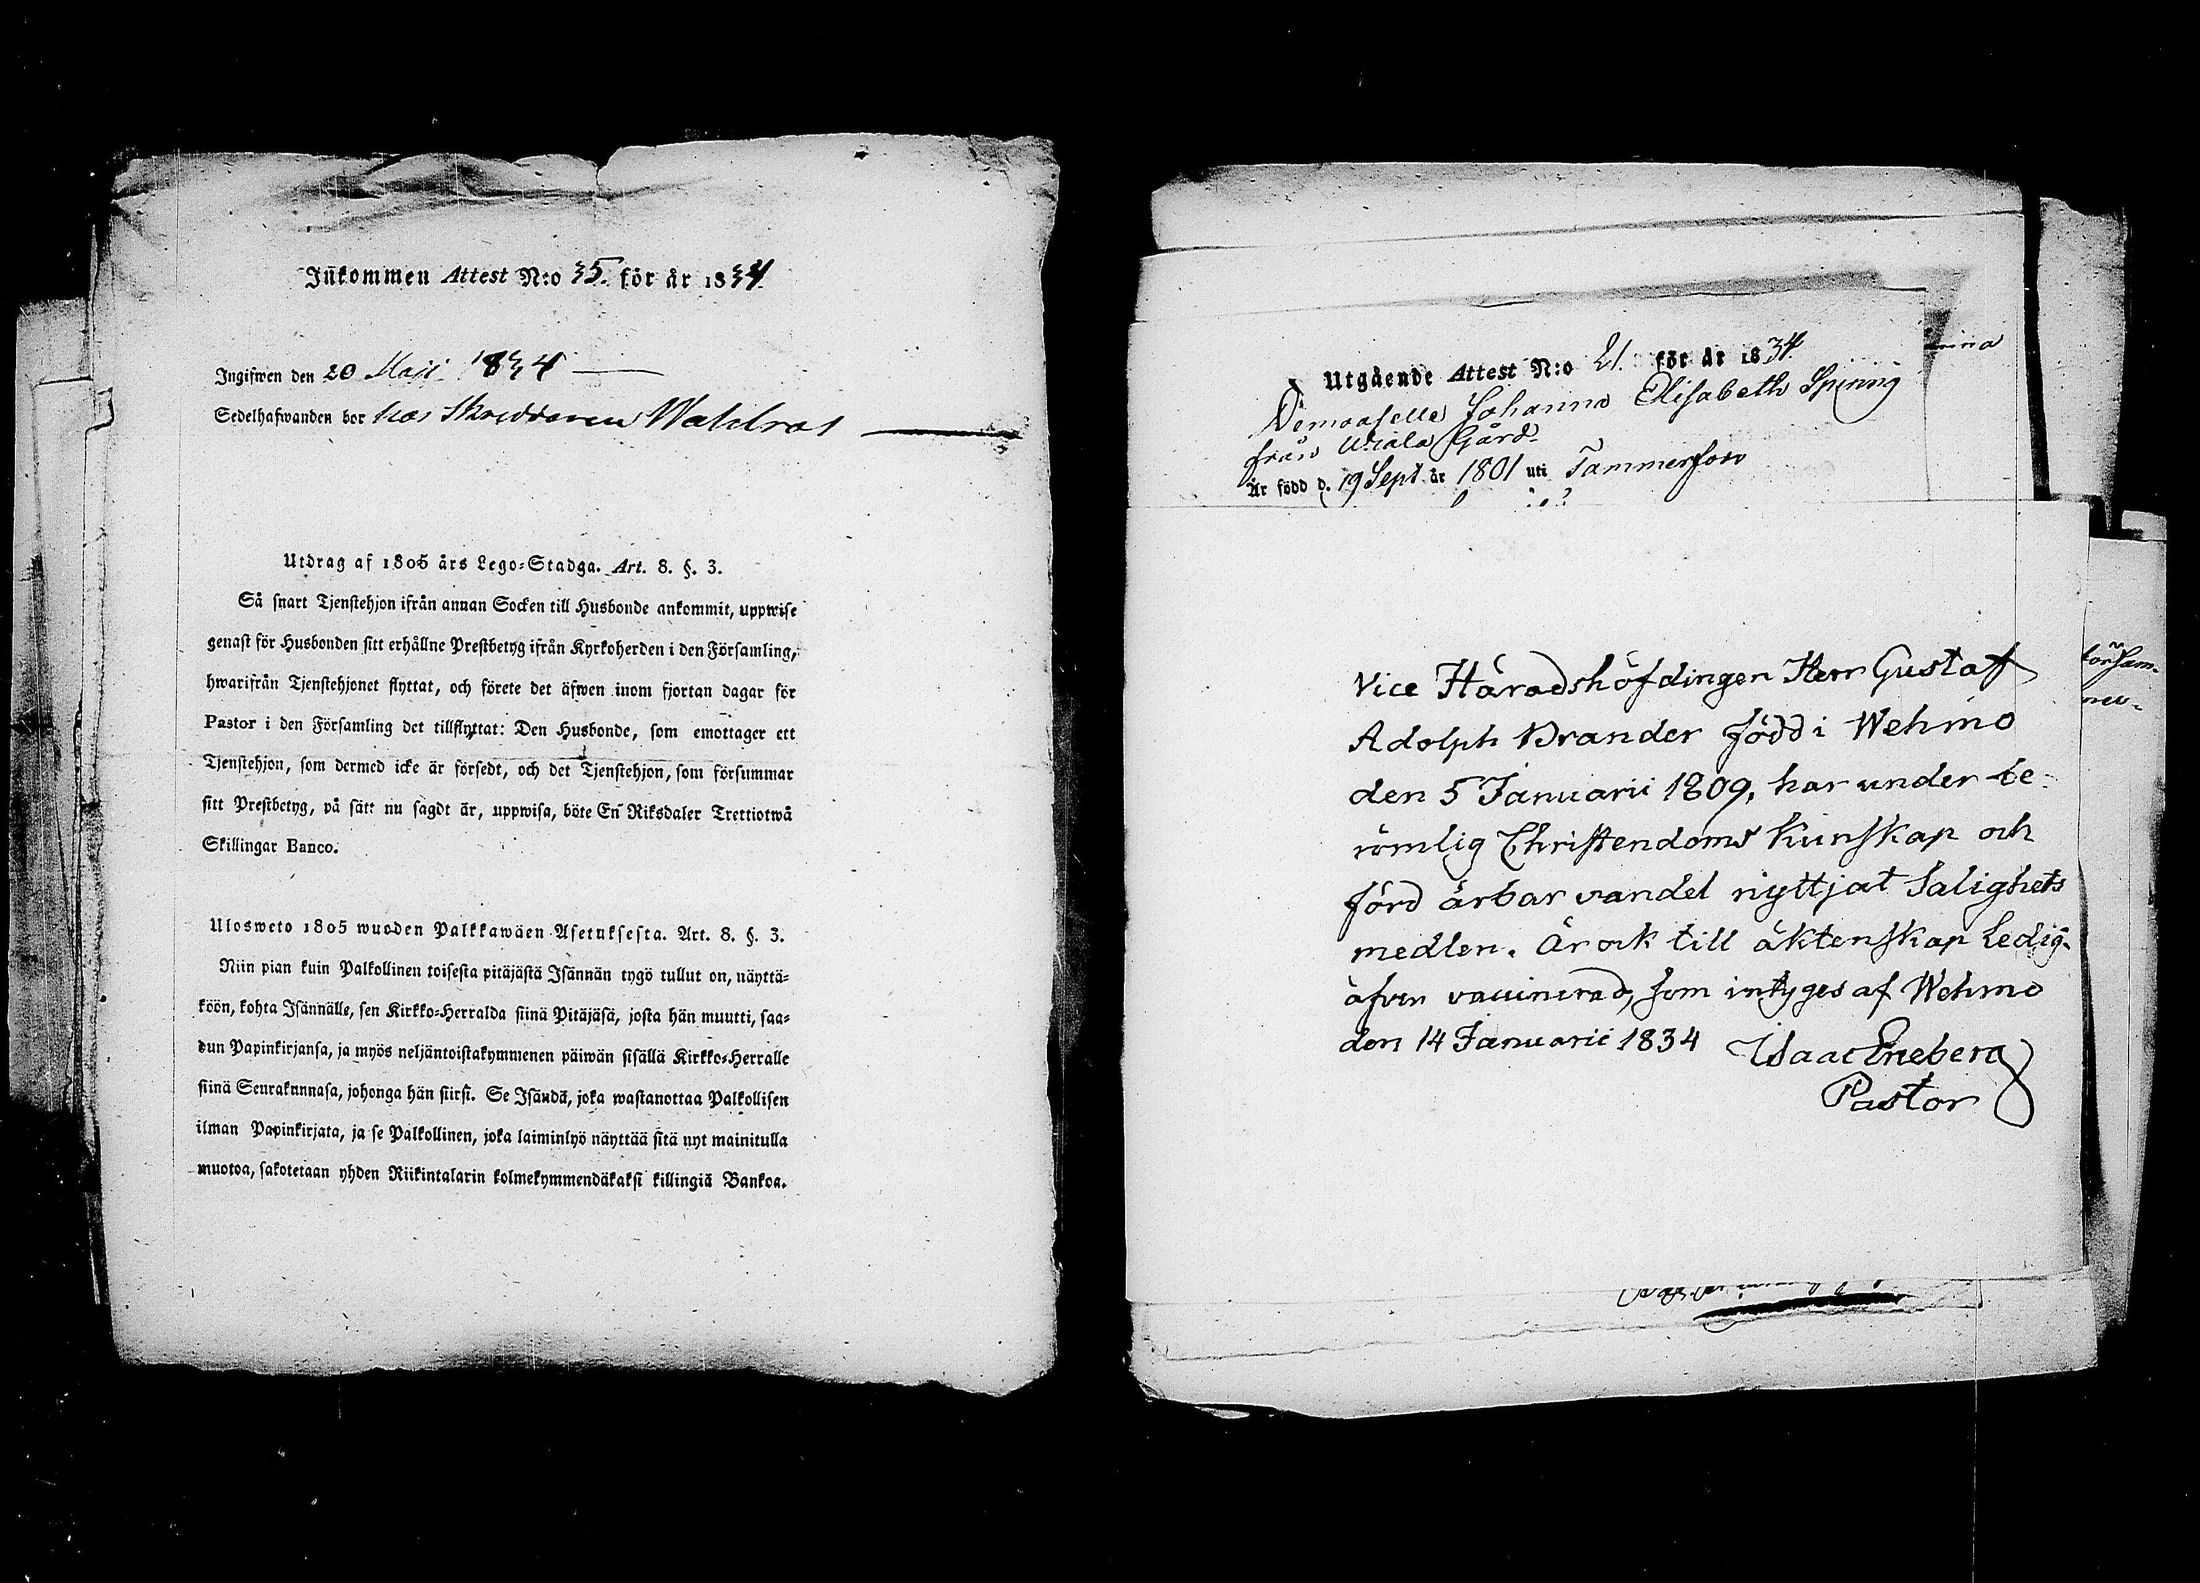 Inkommen Attest N:o 35. för år 1834
Ingifwen den 20 Maji 1834
Sedelhafwanden bor hos Skreddaren Wahlroos
Utdrag af 1805 års Lego-Stadga. Art. 8. §. 3.
Så snart Tjenstehjon ifrån annan Socken till Husbonde ankommit, uppwise
genast för Husbonden sitt erhållne Prestbetyg ifrån Kyrkoherden i den Församling,
hwarifrån Tjenstehjonet flyttat, och förete det äfwen inom fjortan dagar för
Pastor i den Församling det tillflyttat: Den Husbonde, som emottager ett
Tjenstehjon, som dermed icke är försedt, och det Tjenstehjon, som försummar
sitt Prestbetyg, på sätt nu sagdt är, uppwisa, böte En Riksdaler Trettiotwå
Skillingar Banco.
Ulosweto 1805 wuoden Palkkawäen Asetuksesta. Art. 8. §. 3.
Niin pian kuin Palkollinen toisesta pitäjästä Isännän tygö tullut on, näyttä-
köön, kohta Isännälle, sen Kirkko-Herralda siinä Pitäjäsä, josta hän muutti, saa-
dun Papinkirjansa, ja myös neljäntoistakymmenen päiwän sisällä Kirkko-Herralle
siinä Seurakunnasa, johonga hän siirsi. Se Isändä, joka wastanottaa Palkollisen
ilman Papinkirjata, ja se Palkollinen, joka laiminlyö näyttää sitä nyt mainitulla
muotoa, sakotetaan yhden Riikintalarin kolmekymmendäkaksi killingiä Bankoa.
Utgående Attest N:o 21. för år 1834.
Demoaselle Johanna Elisabeth Spining
från Wiala Gård
Är född d. 19 Sept. år 1801 uti Tammerfors
Vice Häradshöfdingen Herr Gustaf
Adolph Brander född i Wehmo
den 5 Januarii 1809, har under be-
römlig Christendoms Kunskap och
förd ärbar vandel nyttjat Salighets
medlen. Är ock till äktenskap Ledig-
äfven vaccinerad, som intyges af Wehmo
den 14 Januarii 1834 Isaac Eneberg
Pastor